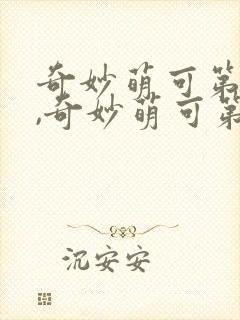 奇妙萌可第
,奇妙萌可第
沉安安